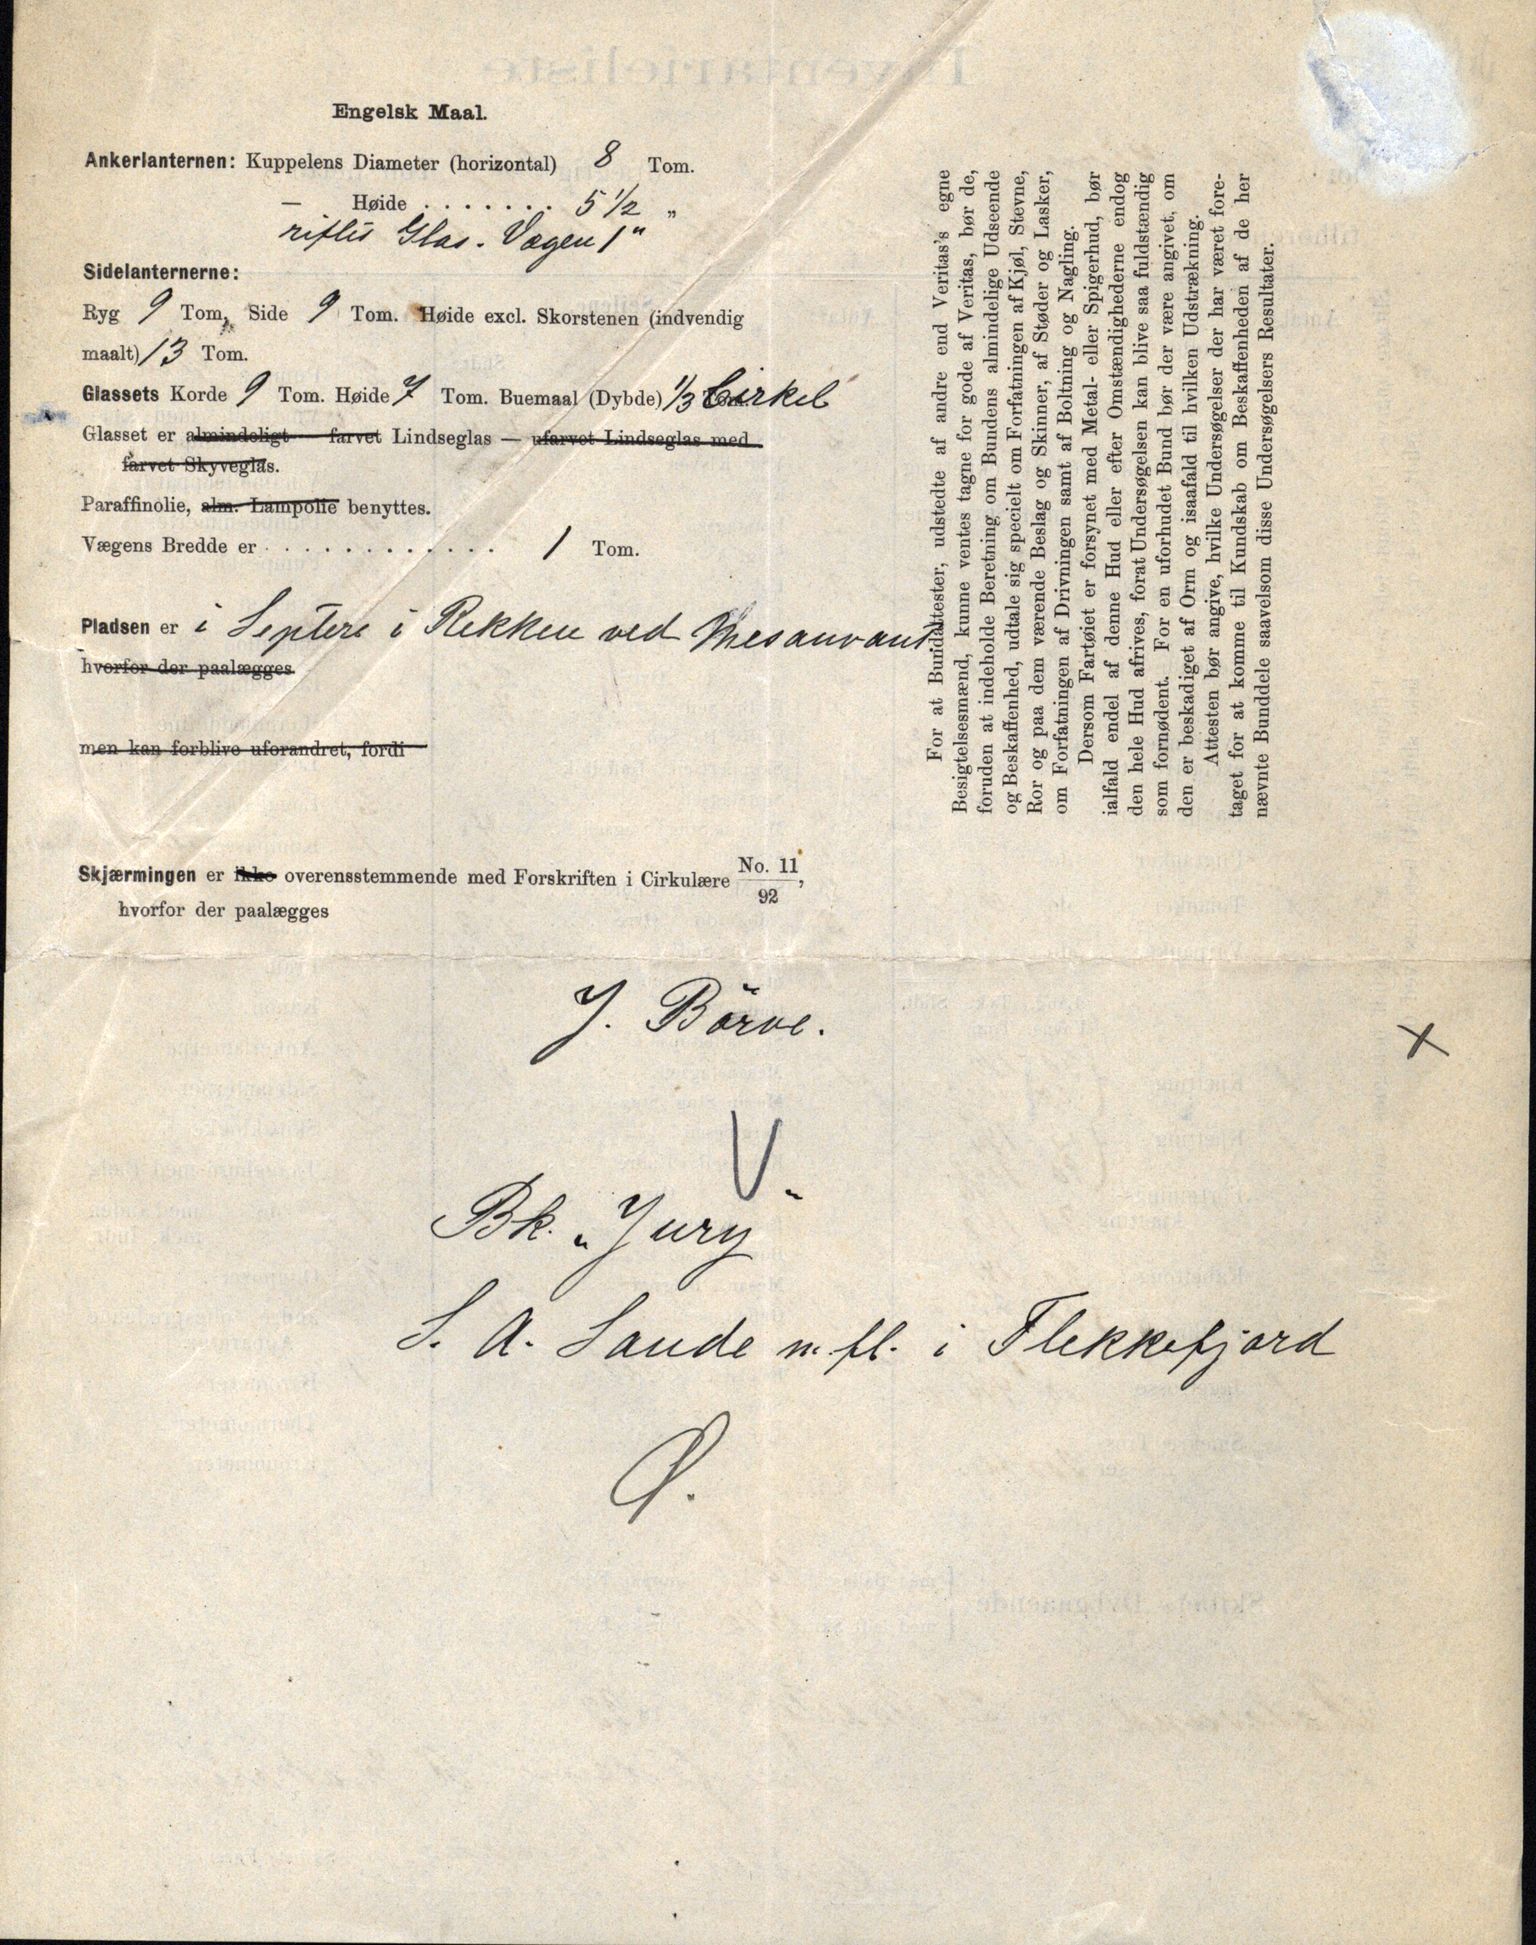 Engelsk Maal.
Ankerlanternen: Kuppelens Diameter (horizontal) 8 Tom.
— Høide . . . . . . . 5 1/2 "
riflet Glas. Vægen 1"
Sidelanternerne:
Ryg 9 Tom, Side 9 Tom. Høide excl. Skorstenen (indvendig
maalt) 13 Tom.
Glassets Korde 9 Tom. Høide 7 Tom. Buemaal (Dybde) 1/3 Cirkel
Glasset er almindeligt — farvet Lindseglas — ufarvet Lindseglas med
farvet Skyveglas.
Paraffinolie, alm. Lampolie benyttes.
Vægens Bredde er . . . . . . . . . . . . . 1 Tom.
Pladsen er i Septere i Rekken ved Mesanvant
hvorfor der paalægges
men kan forblive uforandret, fordi
Skjærmingen er ikke overensstemmende med Forskriften i Cirkulære No. 11/92,
hvorfor der paalægges
J. Börve.
V
Bk. „Jury"
S. A. Sande m. fl. i Flekkefjord
Ø.
x
For at Bundattester, udstedte af andre end Veritas's egne
Besigtelsesmænd, kunne ventes tagne for gode af Veritas, bør de,
foruden at indeholde Beretning om Bundens almindelige Udseende
og Beskaffenhed, udtale sig specielt om Forfatningen af Kjøl, Stevne,
Ror og paa dem værende Beslag og Skinner, af Støder og Lasker,
om Forfatningen af Drivningen samt af Boltning og Nagling.
Dersom Fartøiet er forsynet med Metal- eller Spigerhud, bør
ialfald endel af denne Hud eller efter Omstændighederne endog
den hele Hud afrives, forat Undersøgelsen kan blive saa fuldstændig
som fornødent. For en uforhudet Bund bør der være angivet, om
den er beskadiget af Orm og isaafald til hvilken Udstrækning.
Attesten bør angive, hvilke Undersøgelser der har været fore-
taget for at komme til Kundskab om Beskaffenheden af de her
nævnte Bunddele saavelsom disse Undersøgelsers Resultater.